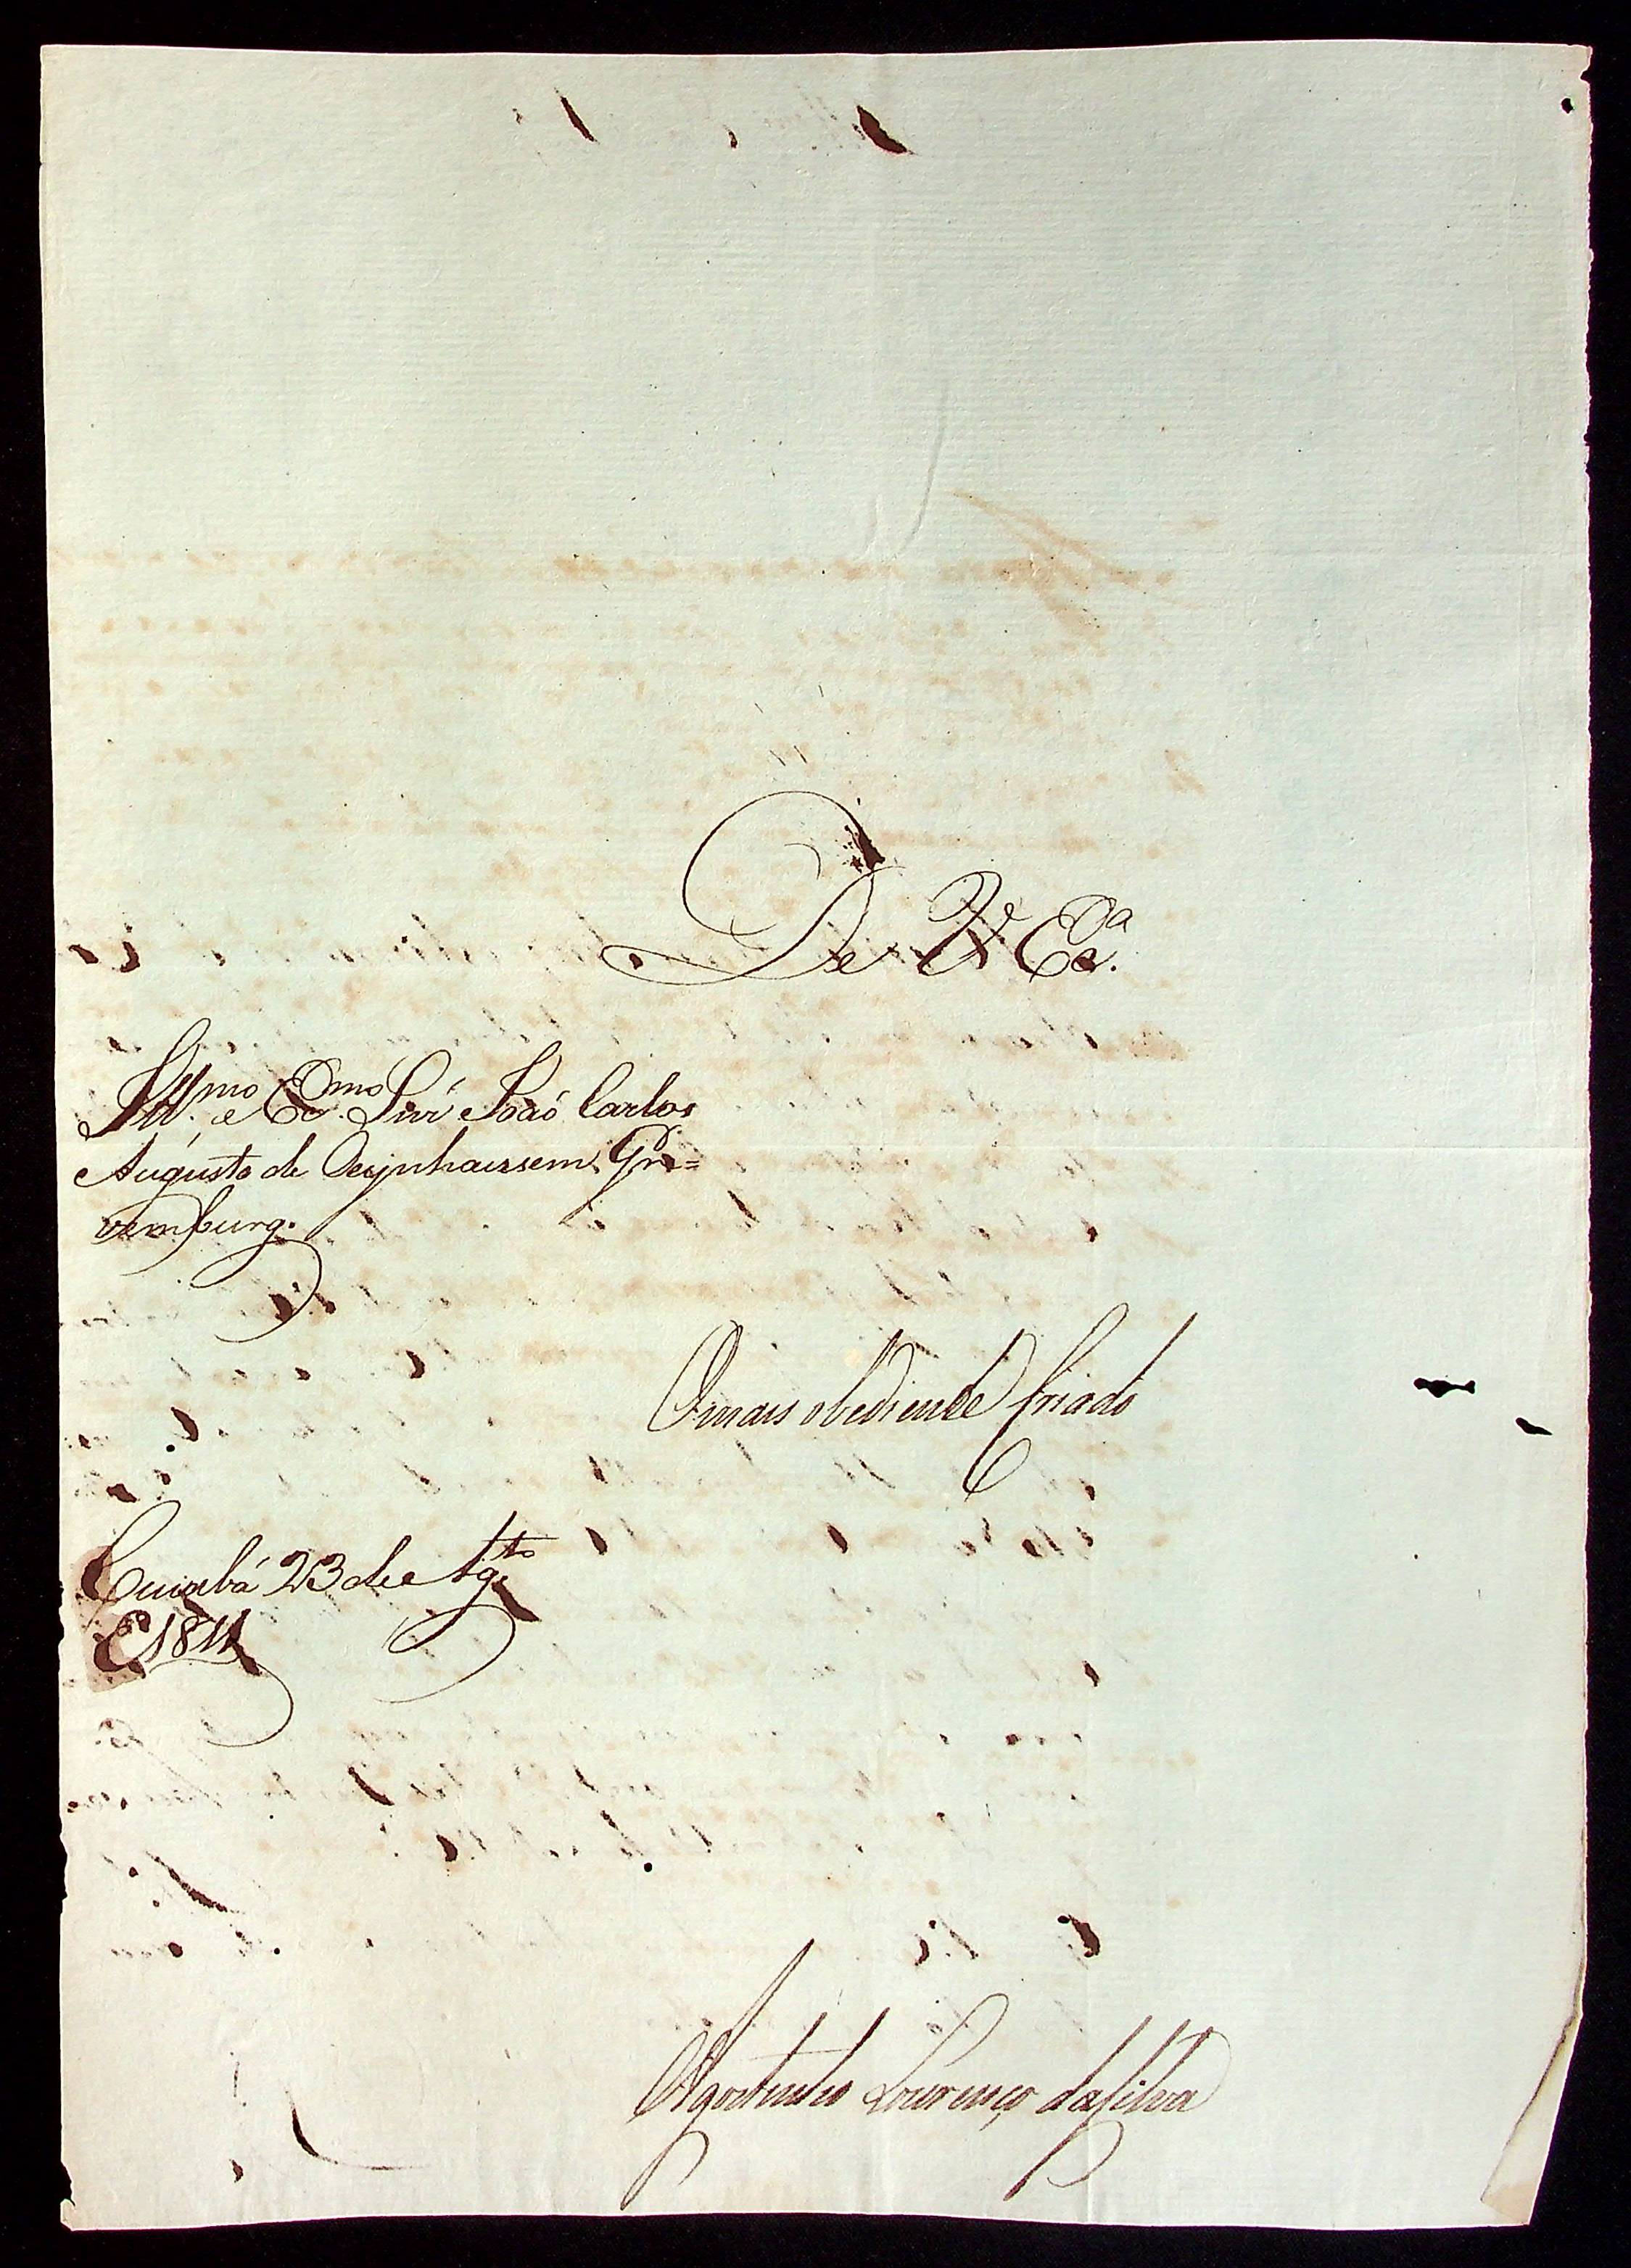 De V. Exª.
Illmo. e Exmo. Snr. João Carlos
Augusto de Oeynhaussem, Gra=
vemburg.
O mais obediente Criado
Cuiabá 23 de Agto.
E 1811
Agostinho Lourenço da Silva